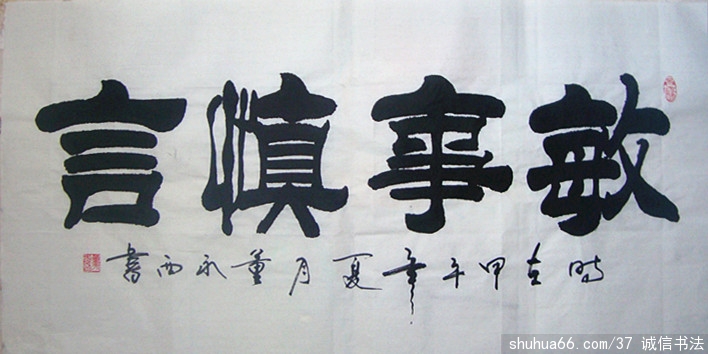 敏事慎言
时在甲午年夏月董永西書
shuhua66.com/37 诚信书法